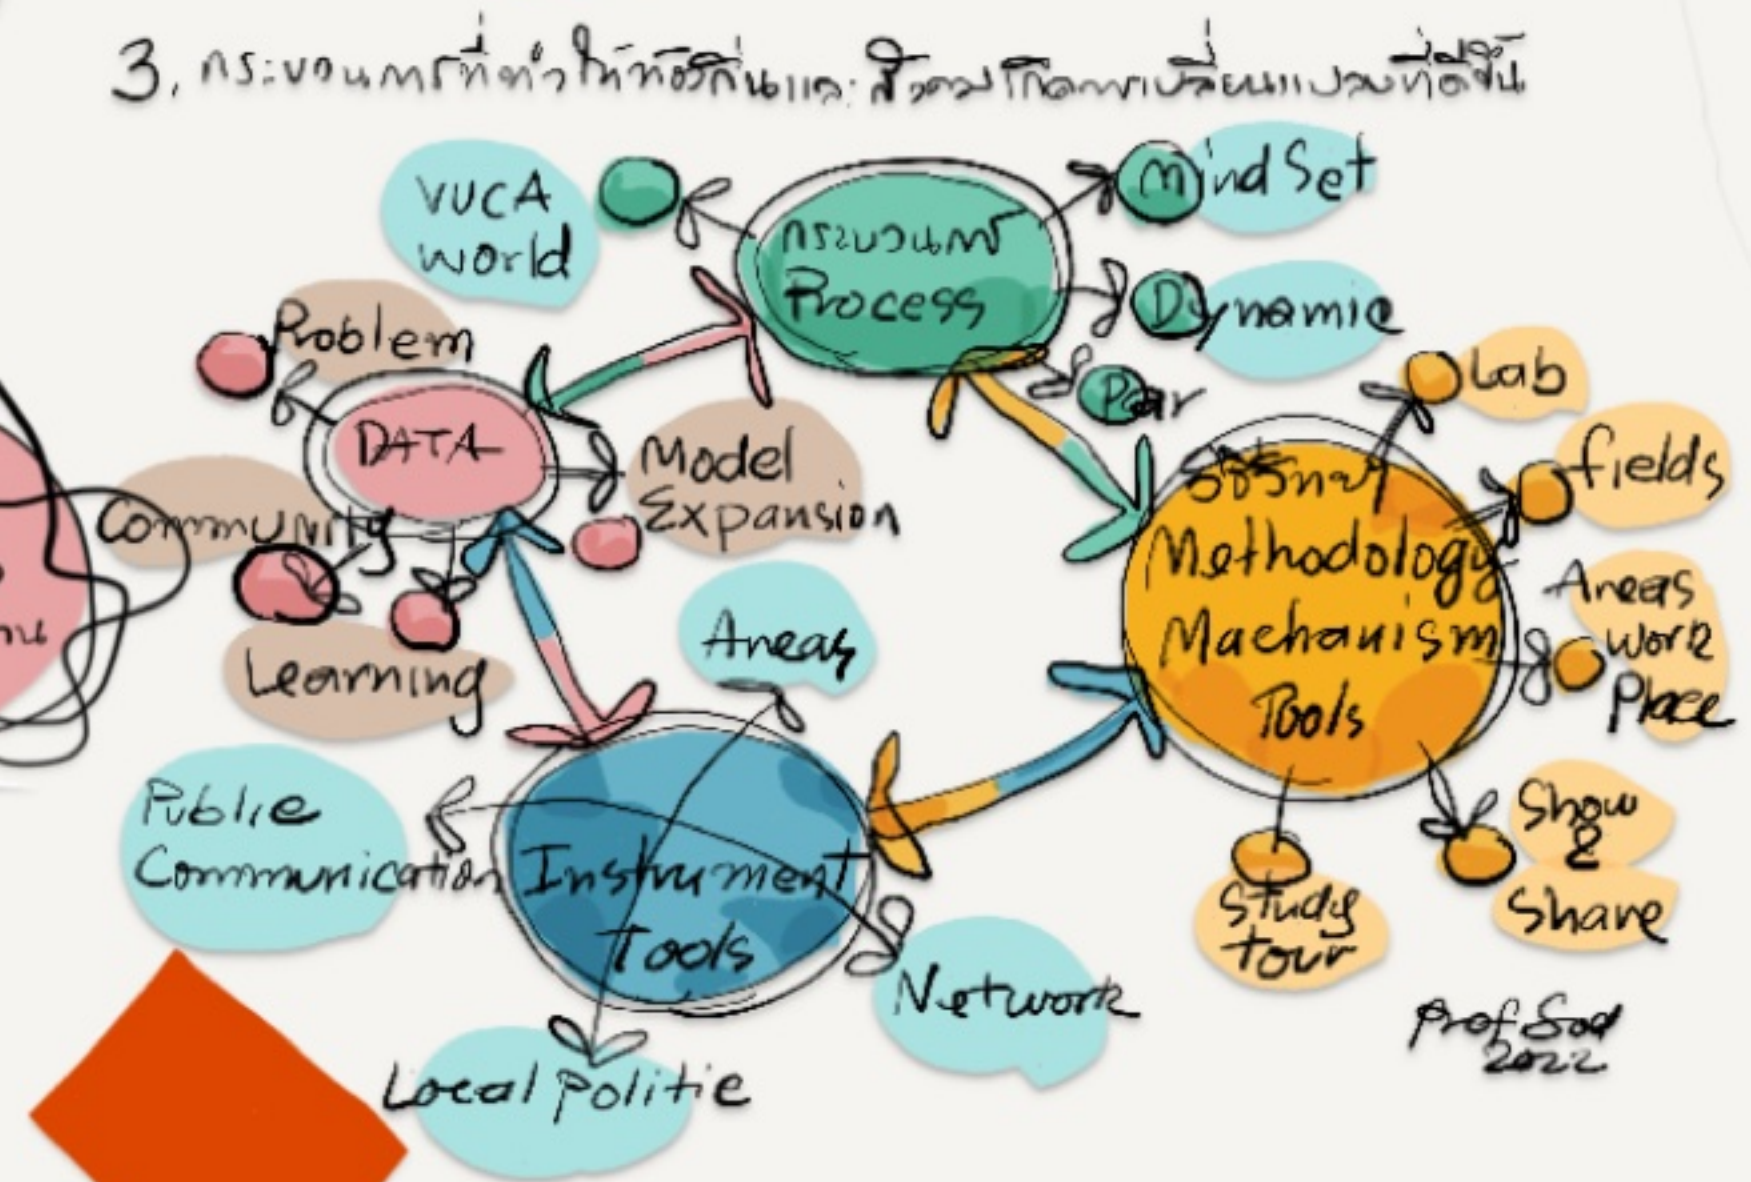 3. กระบวนการที่ทำให้ท้องถิ่นและสังคมเกิดการเปลี่ยนแปลงที่ดีขึ้น
VUCA
world
กระบวนการ
Process
MindSet
Dynamic
Par
Problem
DATA
Model
Expansion
Community
Learning
Lab
fields
Methodology
Machanism
Tools
Areas
work
Place
Show
&
Share
Study
tour
Areas
Public
Communication
Instrument
Tools
Network
Local Politic
Prof Sod
2022